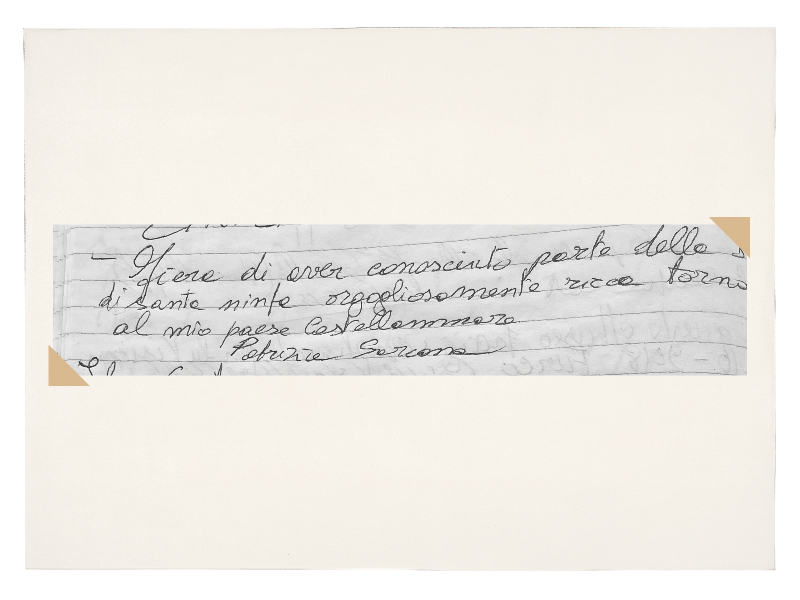 - Fiera di aver conosciuto parte della s
di santa ninfa orgogliosamente ricca torno
al mio paese Castellammare
Patrizia